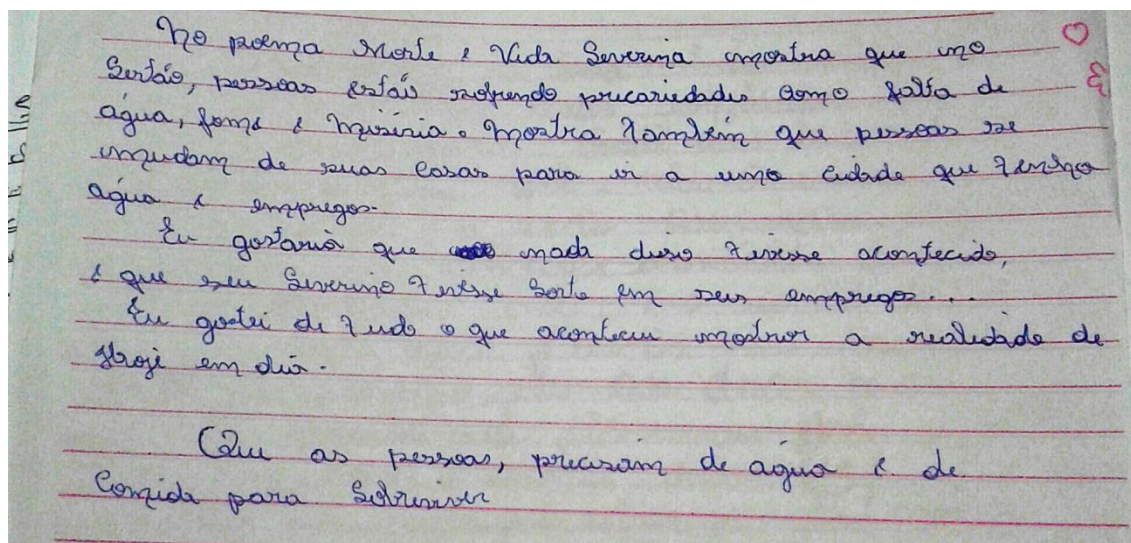 No poema Morte e Vida Severina mostra que no
Sertão, pessoas estão sofrendo precariedades como falta de
água, fome e miséria. Mostra também que pessoas se
mudam de suas casas para ir a uma cidade que tenha
água e empregos.
Eu gostaria que nada disso tivesse acontecido,
e que seu Severino tivesse sorte em seus empregos...
Eu gostei de tudo o que aconteceu mostrar a realidade de
Hoje em dia.
Que as pessoas, precisam de água e de
Comida para Sobreviver